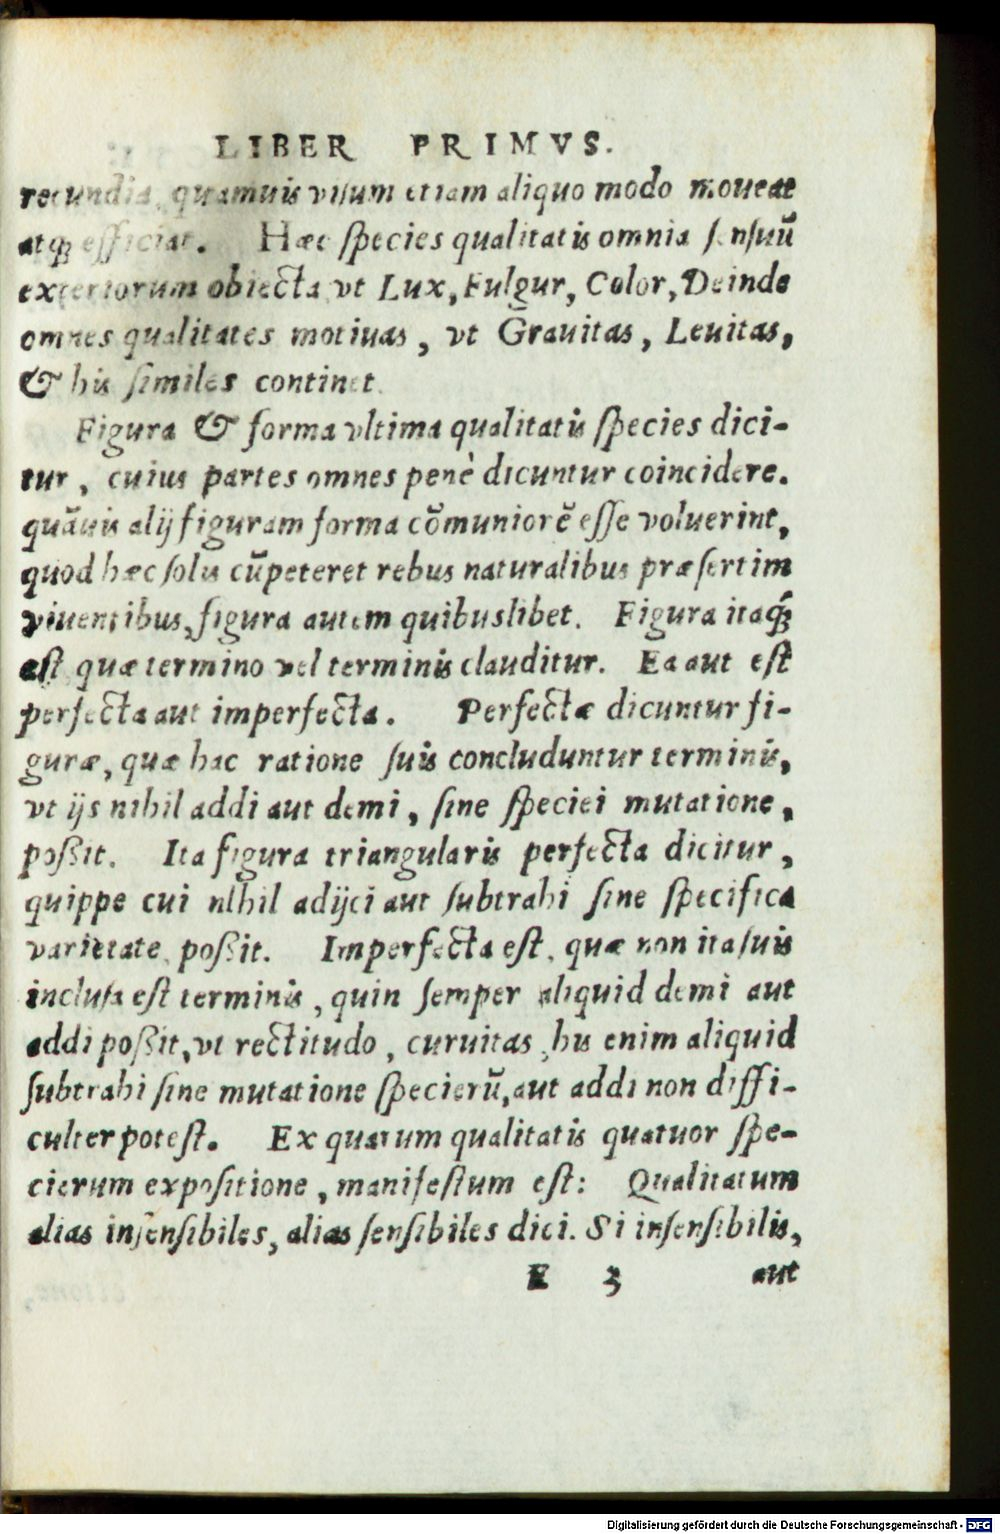 LIBER PRIMVS.
recundia, quamuis visum etiam aliquo modo moueat
atq; efficiat. Hæc species qualitatis omnia sensuũ
exteriorum obiecta, vt Lux, Fulgur, Color, Deinde
omnes qualitates motiuas, vt Grauitas, Leuitas,
& his similes continet.
Figura & forma vltima qualitatis species dici-
tur, cuius partes omnes penè dicuntur coincidere.
quãuis alij figuram forma cõmuniorẽ esse voluerint,
quod hæc solis cũpeteret rebus naturalibus præsertim
viuentibus, figura autem quibuslibet. Figura itaq;
est quæ termino vel terminis clauditur. Ea aut est
perfecta aut imperfecta. Perfectæ dicuntur fi-
guræ, quæ hac ratione suis concluduntur terminis,
vt ijs nihil addi aut demi, sine speciei mutatione,
poßit. Ita figura triangularis perfecta dicitur,
quippe cui nihil adijci aut subtrahi sine specifica
varietate, poßit. Imperfecta est, quæ non ita suis
inclusa est terminis, quin semper aliquid demi aut
addi poßit, vt rectitudo, curuitas, his enim aliquid
subtrahi sine mutatione specierũ, aut addi non diffi-
culter potest. Ex quarum qualitatis quatuor spe-
cierum expositione, manifestum est: Qualitatum
alias insensibiles, alias sensibiles dici. Si insensibilis,
E 3 aut
Digitalisierung gefördert durch die Deutsche Forschungsgemeinschaft - DFG